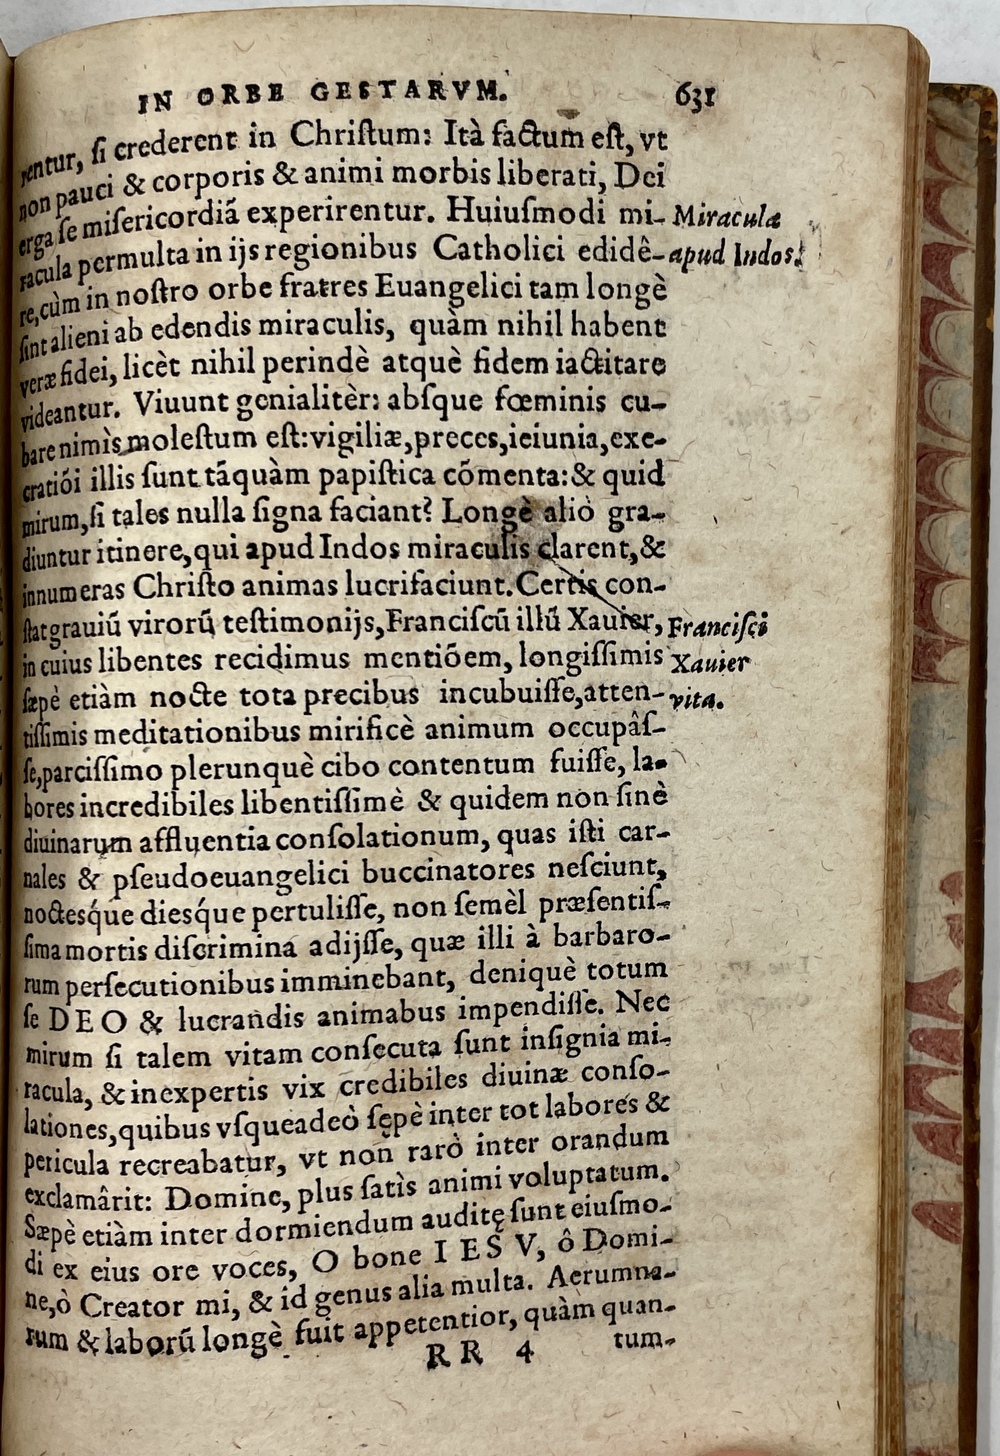 IN ORBE GESTARVM. 631
rentur, ſi crederent in Chriſtum: Ità factum eſt, vt
non pauci & corporis & animi morbis liberati, Dei
erga ſe miſericordiã experirentur. Huiuſmodi mi-
racula permulta in ijs regionibus Catholici edidê-
re, cùm in noſtro orbe fratres Euangelici tam longè
ſint alieni ab edendis miraculis, quàm nihil habent
veræ fidei, licèt nihil perindè atquè fidem iactitare
videantur. Viuunt genialitèr: abſque fœminis cu-
bare nimìs moleſtum eſt: vigiliæ, preces, ieiunia, exe-
cratiõi illis ſunt tãquàm papiſtica cõmenta: & quid
mirum, ſi tales nulla ſigna faciant? Longè aliò gra-
diuntur itinere, qui apud Indos miraculis clarent, &
innumeras Chriſto animas lucrifaciunt. Certis con-
ſtat grauiũ virorũ teſtimonijs, Franciſcũ illũ Xauier,
in cuius libentes recidimus mentiõem, longiſſimis
ſæpè etiàm nocte tota precibus incubuiſſe, atten-
tiſſimis meditationibus mirificè animum occupâſ-
ſe, parciſſimo plerunquè cibo contentum fuiſſe, la-
bores incredibiles libentiſſimè & quidem non ſinè
diuinarum affluentia conſolationum, quas iſti car-
nales & pſeudoeuangelici buccinatores neſciunt,
noctesq́ue diesq́ue pertuliſſe, non ſemèl præſentiſ-
ſima mortis diſcrimina adijſſe, quæ illi à barbaro-
rum perſecutionibus imminebant, deniquè totum
ſe DEO & lucrandis animabus impendiſſe. Nec
mirum ſi talem vitam conſecuta ſunt inſignia mi-
racula, & inexpertis vix credibiles diuinæ conſo-
lationes, quibus vſqueadeò ſępè inter tot labores &
pericula recreabatur, vt non rarò inter orandum
exclamârit: Domine, plus ſatìs animi voluptatum.
Sæpè etiàm inter dormiendum auditę ſunt eiuſmo-
di ex eius ore voces, O bone IESV, ô Domi-
ne, ò Creator mi, & id genus alia multa. Aerumna-
rum & laborũ longè fuit appetentior, quàm quan-
RR 4 tum-
Miracula
apud Indos.
Franciſci
Xauier
vita.